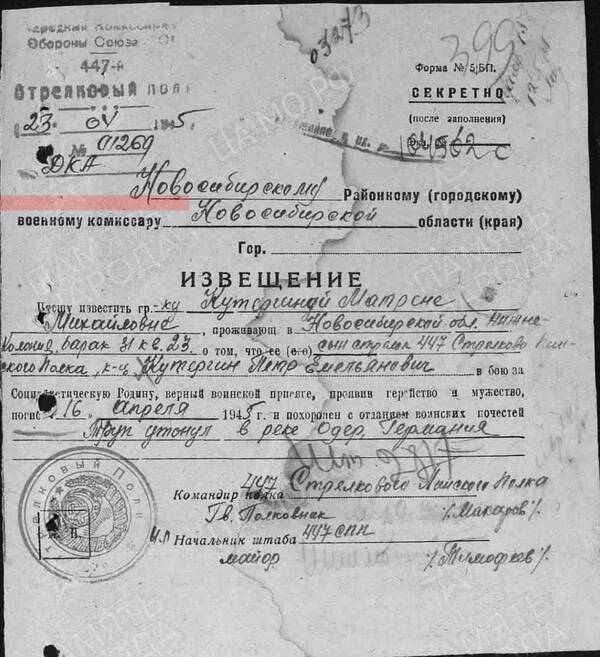 Народный Комиссариат
Обороны Союза
447-й
Стрелковый полк
23 04 1945
№ 01269
ДКА
03273
399
Форма № 5/БП.
СЕКРЕТНО
(после заполнения)
Новосибирскому Районному (городскому)
военному комиссару Новосибирской области (края)
Гор.
ИЗВЕЩЕНИЕ
Прошу известить гр-ку Кутергиной Матроне
Михайловне, проживающ. в Новосибирской обл. Нижне
Колония, барак 31 кв. 23. о том, что ее (его) сын стрелок 447 Стрелково
ского Полка, к-ц Кутергин Петр Емельянович в бою за
Социалистическую Родину, верный воинской присяге, проявив геройство и мужество,
погиб 16 апреля 1945 г. и похоронен с отданием воинских почестей
Труп утонул в реке Одер, Германия
Командир полка 447 Стрелкового Полка
Гв. Полковник /Макаров/.
И.О Начальник штаба 447 СПП
майор /Тимофеев/.
Стрелковый Полк
ЦАМО.РФ
ПАМЯТЬ
НАРОДА